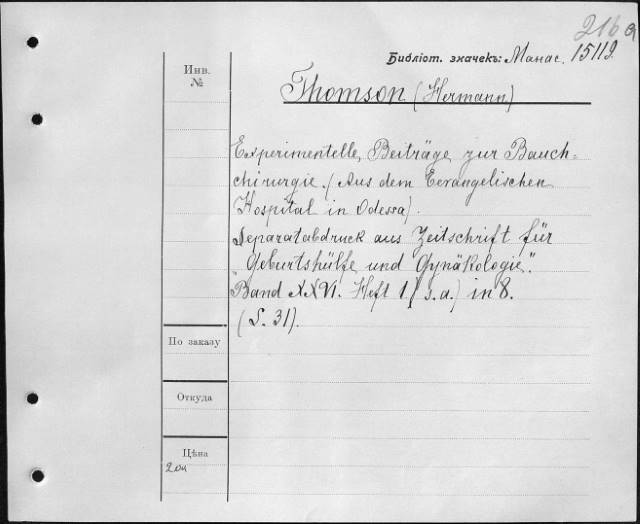 216a
Библіот. значекъ: Манас. 15112
Инв.
№
Thomson (Hermann)
Experimentelle Beiträge zur Bauch-
chirurgie. (Aus dem Eevangelischen
Hospital in Odessa).
Separatabdruck aus Zeitschrift für
"Geburtshülfe und Gynäkologie".
Band XXVI. Heft 1 (s.a.) in 8.
(S. 31).
По заказу
Откуда
Цѣна